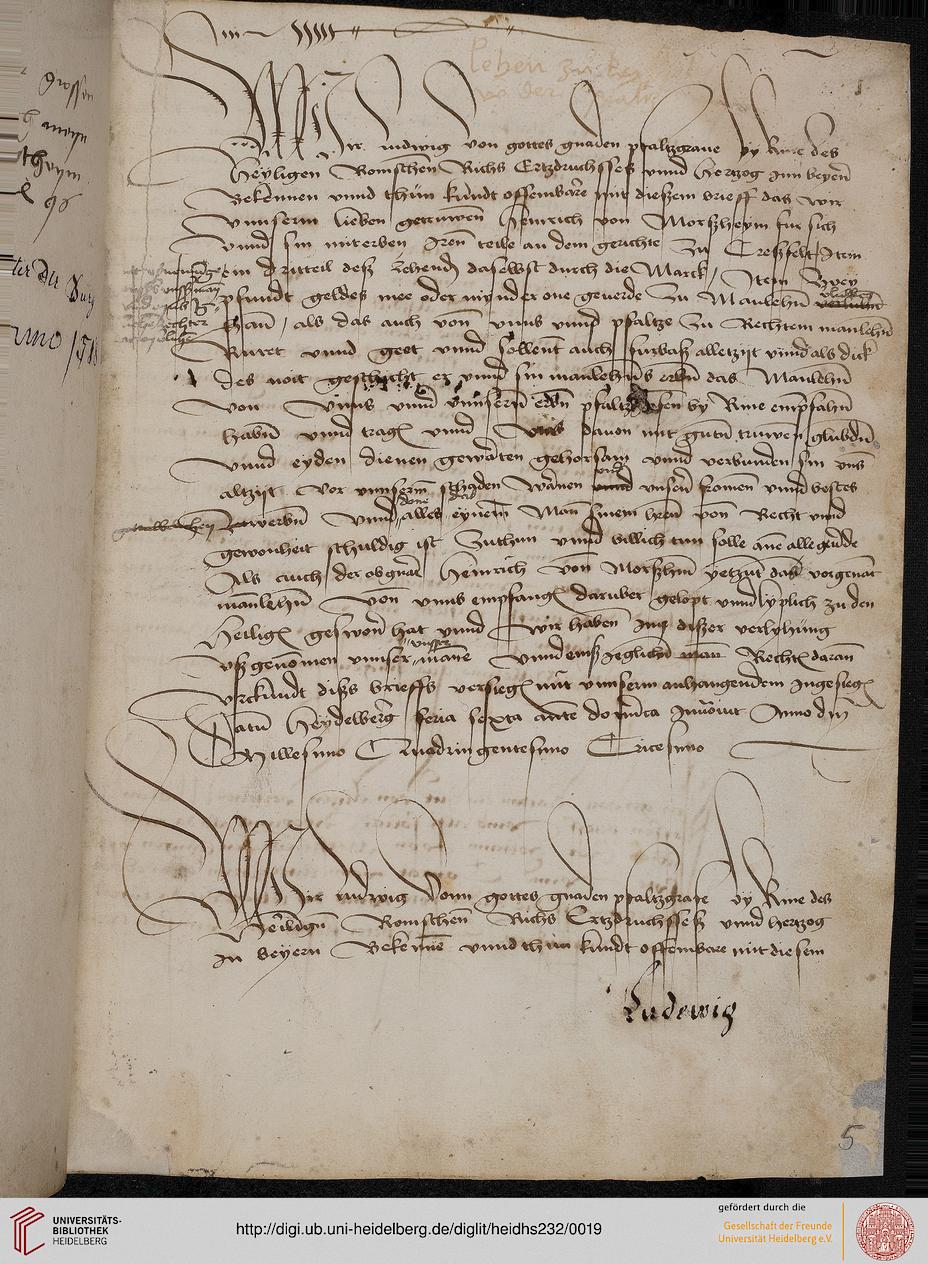 Lehen zu
Wir ludwig von gottes gnaden pfaltzgraue by Rine des
Heyligen Romschen Richs Ertzdruchsseß vnnd hertzog Inn beyern
Bekennen vnnd thun kundt offembare mit dießem brieff das wir
vnnserm lieben getruwen Heinrich von Morßheym fur sich
vnnd sin miterben Iren teile an dem gerichte zu Creßfelt Item
ein dritteil desz zehend daselbst durch die Marck / Item zwey
pfundt geldes mee oder mynder one geuerde zu Manlehn
han / als das auch von vnns vnnd pfaltze zu Rechtem manlehn
Ruret vnnd geet vnnd sollent auch furbaß alletzijt vnnd als dick
des noit geschicht er vnnd sin manlehns erbn das Manlehn
von vnns vnnd vnnsern erbn pfaltzgrauen by Rine empfahn
habn vnnd trag vnnd vns dauon mit gutn truwen glubdn
vnnd eyden dienen gewarten gehorsam vnnd verbunden sin vns
altzijt vor vnnserm schaden warnen vnd vnsern fromen vnnd bestes
werbn vnnd alles done das eynem Man sinem hern von Recht vnnd
gewonheit schuldig ist zuthun vnnd billich tun solle ane alle geuerde
Als auch der obgnant Heinrich von Morßhm yetzunt das vorgenant
manlehn von vnns empfang daruber gelopt vnnd lyplich zu den
Heilig gesworn hat vnnd wir haben Inn dißer verlyhung
vßgenomen vnnser vnnser manne vnnd eins yeglichen Recht daran
vrckundt diß brieffs versieg mit vnnserm anhangendem Ingesieg
Datum Heydelberg feria sexta ante dominica Inuocauit Anno dni
Millesimo Quadringentesimo Tricesimo
Wir ludwig vonn gottes gnaden pfaltzgraue by Rine des
Heiligen Romschen Richs Ertzdruchsseß vnnd hertzog
In beyern Bekenne vnnd thun kundt offembare mit diesem
Ludewig
5
UNIVERSITÄTS-
BIBLIOTHEK
HEIDELBERG
http://digi.ub.uni-heidelberg.de/diglit/heidhs232/0019
gefördert durch die
Gesellschaft der Freunde
Universität Heidelberg e.V.